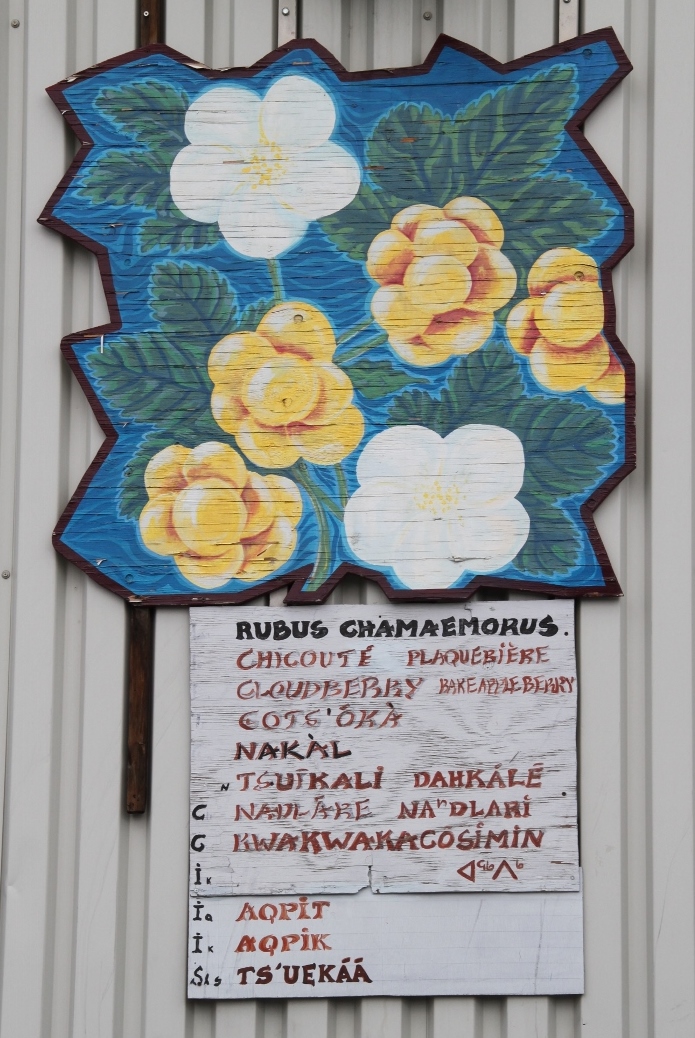 RUBUS CHAMAEMORUS.
CHICOUTÉ PLAQUEBIÈRE
CLOUDBERRY BAKEAPPLEBERRY
COTS'ÓKÀ
NAKÀL
N TSUÍKALI DAHKÁLÉ
C NADLÁRE NAⁿDLARI
C KWAKWAKACÓSIMIN
İK ᐊᖅᐱᒃ
İQ AQPİT
İK AQPİK
SLS TS'UEKÁÁ